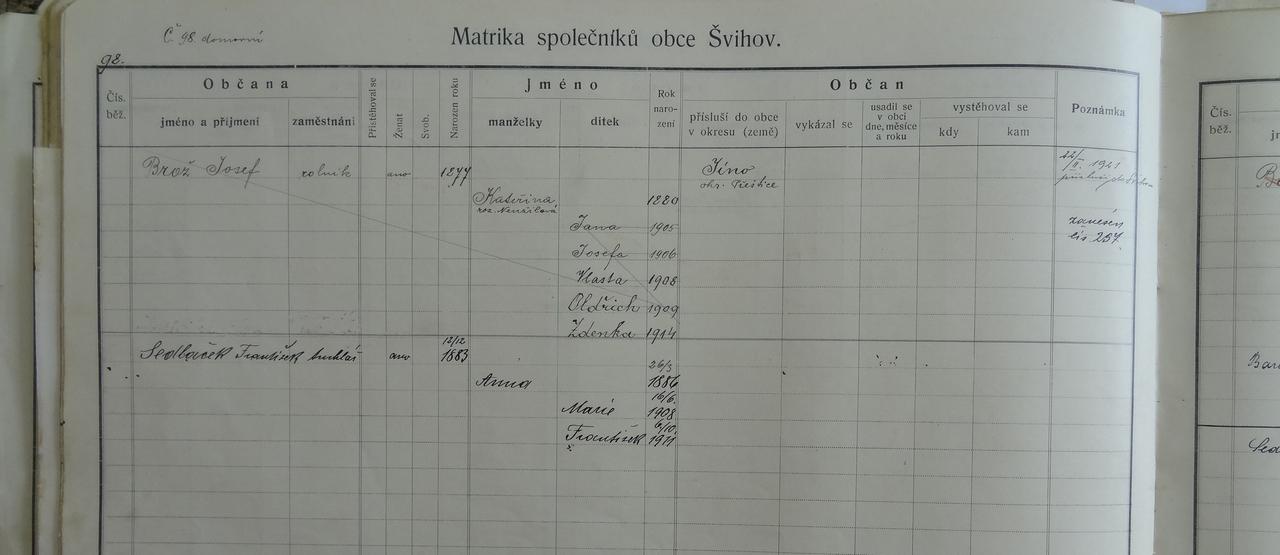 Č 98. domovní
Matrika společníků obce Švihov.
98.
Čís. běž.
Občana
jméno a příjmení
zaměstnání
Přistěhoval se
Ženat
Svob.
Narozen roku
Jméno
manželky
dítek
Rok naro- zení
Občan
přísluší do obce v okresu (země)
vykázal se
usadil se v obci dne, měsíce a roku
vystěhoval se
kdy
kam
Poznámka
Čís. běž.
Brož Josef rolník ano 1877 Jíno 22/II. 1921
okr. Přeštice
Kateřina 1880
roz.
Jana 1905 zanesen
Josefa 1906 čís. 257.
Vlasta 1908
Oldřich 1909
Zdenka 1914
12/12
Sedláček František truhlář ano 1883
26/3
Anna 1886
16/6.
Marie 1908
6/10.
František 1911